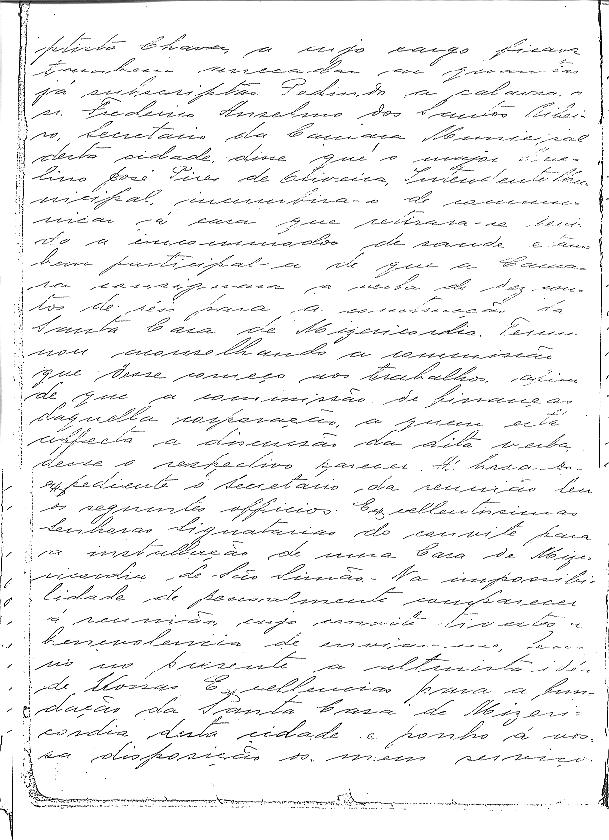 pinto Chaves, a cujo cargo ficava
tambem arrecadar as quantias
já subscriptas. Pedindo a palavra o
sr. Frederico Anselmo dos Santos Ribei-
ro, Secretario da Camara Municipal
desta cidade, disse que o major
lino José Pires de Oliveira, Intendente Mu
nicipal, incumbira-o de commu-
nicar á casa que retirara-se
a incommodos de saude e tam
bem participal-a de que a Cama-
ra consignara a verba de dez con-
tos de réis para a construcção da
Santa Casa de Mizericordia. Termi-
nou aconselhando a commissão
que desse começo aos trabalhos, afim
de que a commissão de finanças
daquella corporação, a quem está
affecta a discussão da dita verba
desse o respectivo parecer. Á hora do
expediente o secretario da reunião leu
os seguintes officios. Excellentissimas
Senhoras Signatarias do convite para
a installação de uma Casa de Mize-
ricordia de São Simão. Na impossibi-
lidade de pessoalmente comparecer
á reunião, cujo convite tiverão a
benevolencia de enviar-me,
no presente a altruista idéa
de Vossas Excellencias para a fun-
dação da Santa Casa de Mizeri-
cordia desta cidade e ponho á vos-
sa disposição os meus serviços